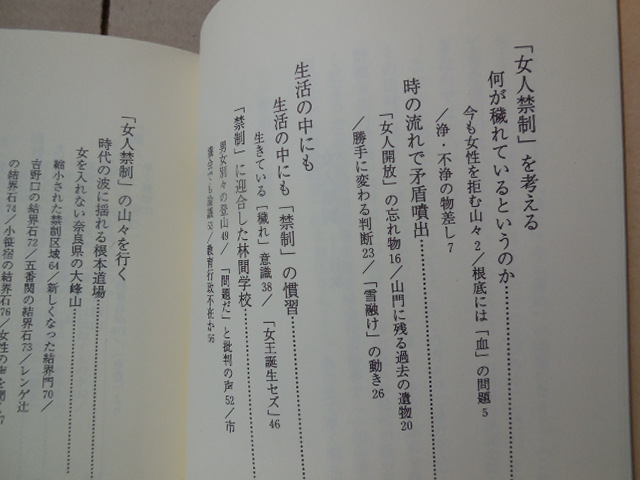 「女人禁制」を考える
何が穢れているというのか…………
今も女性を拒む山々 2／根底には「血」の問題 5
／浄・不浄の物差し 7
時の流れで矛盾噴出…………
「女人開放」の忘れ物 16／山門に残る過去の遺物 20
／勝手に変わる判断 23／「雪融け」の動き 26
生活の中にも
生活の中にも「禁制」の慣習…………
生きている「穢れ」意識 38／「女王誕生セズ」 46
「禁制」に迎合した林間学校…………
男女別々の登山 49／「問題だ」と批判の声 52／市
議会でも論議 53／教育行政不在か 56
「女人禁制」の山々を行く
時代の波に揺れる根本道場…………
女を入れない奈良県の大峰山…………
縮小された禁制区域 64／新しくなった結界門 70／
吉野口の結界石 72／五番関の結界石 73／レンゲ辻
の結界石 74／小笹宿の結界石 76／女性の声を聞